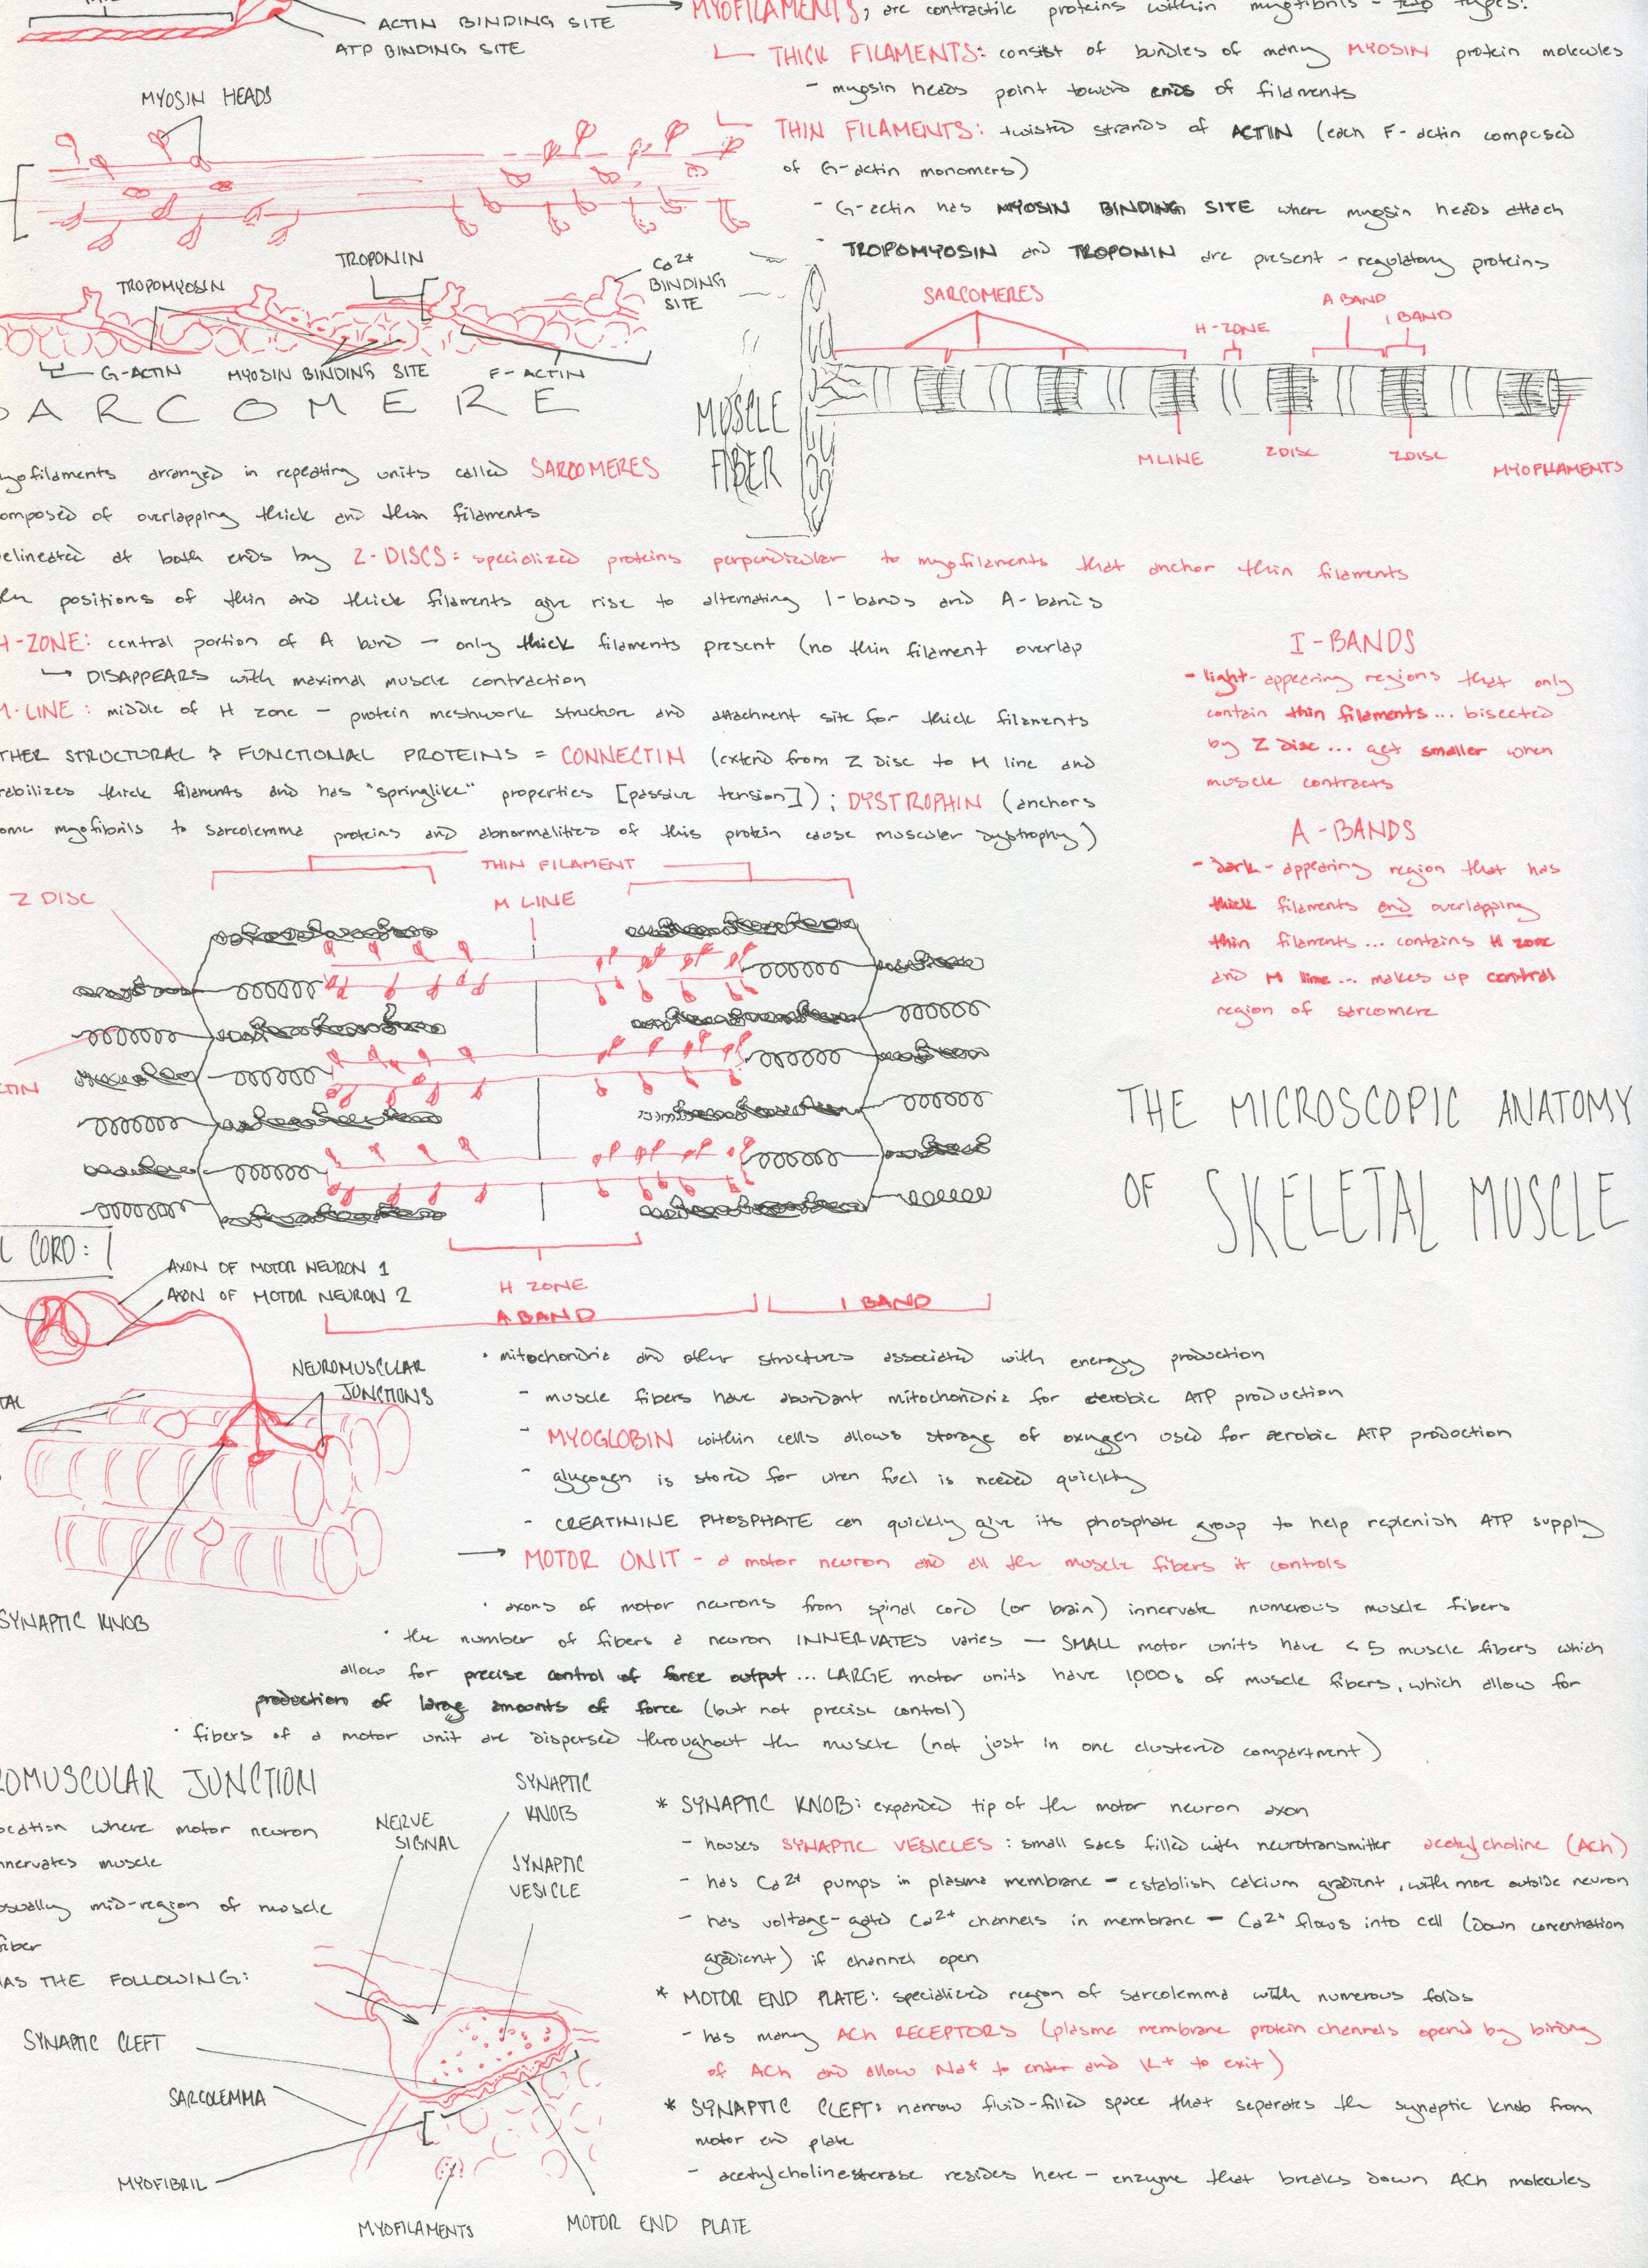 ACTIN BINDING SITE
ATP BINDING SITE
→ MYOFILAMENTS, are contractile proteins within myofibrils - two types:
THICK FILAMENTS: consist of bundles of many MYOSIN protein molecules
- myosin heads point toward ends of filaments
THIN FILAMENTS: twisted strands of ACTIN (each F-actin composed
of G-actin monomers)
- G-actin has MYOSIN BINDING SITE where myosin heads attach
- TROPOMYOSIN and TROPONIN are present - regulatory proteins
MYOSIN HEADS
TROPONIN
TROPOMYOSIN
Ca2+
BINDING
SITE
G-ACTIN
MYOSIN BINDING SITE
F-ACTIN
SARCOMERES
H-ZONE
A BAND
I BAND
MUSCLE
FIBER
M LINE
Z DISC
Z DISC
MYOFILAMENTS
SARCOMERE
myofilaments arranged in repeating units called SARCOMERES
omposed of overlapping thick and thin filaments
elineated at both ends by Z-DISCS: specialized proteins perpendicular to myofilaments that anchor thin filaments
positions of thin and thick filaments give rise to alternating I-bands and A-bands
H-ZONE: central portion of A band - only thick filaments present (no thin filament overlap
→ DISAPPEARS with maximal muscle contraction
M-LINE: middle of H zone - protein meshwork structure and attachment site for thick filaments
THER STRUCTURAL & FUNCTIONAL PROTEINS = CONNECTIN (extend from Z Disc to M line and
tabilizes thick filaments and has "springlike" properties [passive tension]); DYSTROPHIN (anchors
ome myofibrils to sarcolemma proteins and abnormalities of this protein cause muscular dystrophy)
I-BANDS
- light-appearing regions that only
contain thin filaments... bisected
by Z Disc... get smaller when
muscle contracts
A-BANDS
- dark-appearing region that has
thick filaments and overlapping
thin filaments... contains H zone
and M line... makes up central
region of sarcomere
THIN FILAMENT
Z DISC
M LINE
CTIN
H ZONE
A BAND
I BAND
THE MICROSCOPIC ANATOMY
OF SKELETAL MUSCLE
L CORD:
AXON OF MOTOR NEURON 1
AXON OF MOTOR NEURON 2
NEUROMUSCULAR
JUNCTIONS
TAL
SYNAPTIC KNOB
• mitochondria and other structures associated with energy production
- muscle fibers have abundant mitochondria for aerobic ATP production
- MYOGLOBIN within cells allows storage of oxygen used for aerobic ATP production
- glycogen is stored for when fuel is needed quickly
- CREATININE PHOSPHATE can quickly give its phosphate group to help replenish ATP supply
→ MOTOR UNIT - a motor neuron and all the muscle fibers it controls
• axons of motor neurons from spinal cord (or brain) innervate numerous muscle fibers
• the number of fibers a neuron INNERVATES varies - SMALL motor units have < 5 muscle fibers which
allow for precise control of force output... LARGE motor units have 1,000s of muscle fibers, which allow for
production of large amounts of force (but not precise control)
• fibers of a motor unit are dispersed throughout the muscle (not just in one clustered compartment)
ROMUSCULAR JUNCTION
ocation where motor neuron
nnervates muscle
usually mid-region of muscle
fiber
AS THE FOLLOWING:
NERVE
SIGNAL
SYNAPTIC
KNOB
SYNAPTIC
VESICLE
SYNAPTIC CLEFT
SARCOLEMMA
MYOFIBRIL
MYOFILAMENTS
MOTOR END PLATE
* SYNAPTIC KNOB: expanded tip of the motor neuron axon
- houses SYNAPTIC VESICLES: small sacs filled with neurotransmitter acetylcholine (ACh)
- has Ca2+ pumps in plasma membrane - establish calcium gradient, with more outside neuron
- has voltage-gated Ca2+ channels in membrane - Ca2+ flows into cell (down concentration
gradient) if channel open
* MOTOR END PLATE: specialized region of sarcolemma with numerous folds
- has many ACh RECEPTORS (plasma membrane protein channels opened by binding
of ACh and allow Na+ to enter and K+ to exit)
* SYNAPTIC CLEFT: narrow fluid-filled space that separates the synaptic knob from
motor end plate
- acetylcholinesterase resides here - enzyme that breaks down ACh molecules